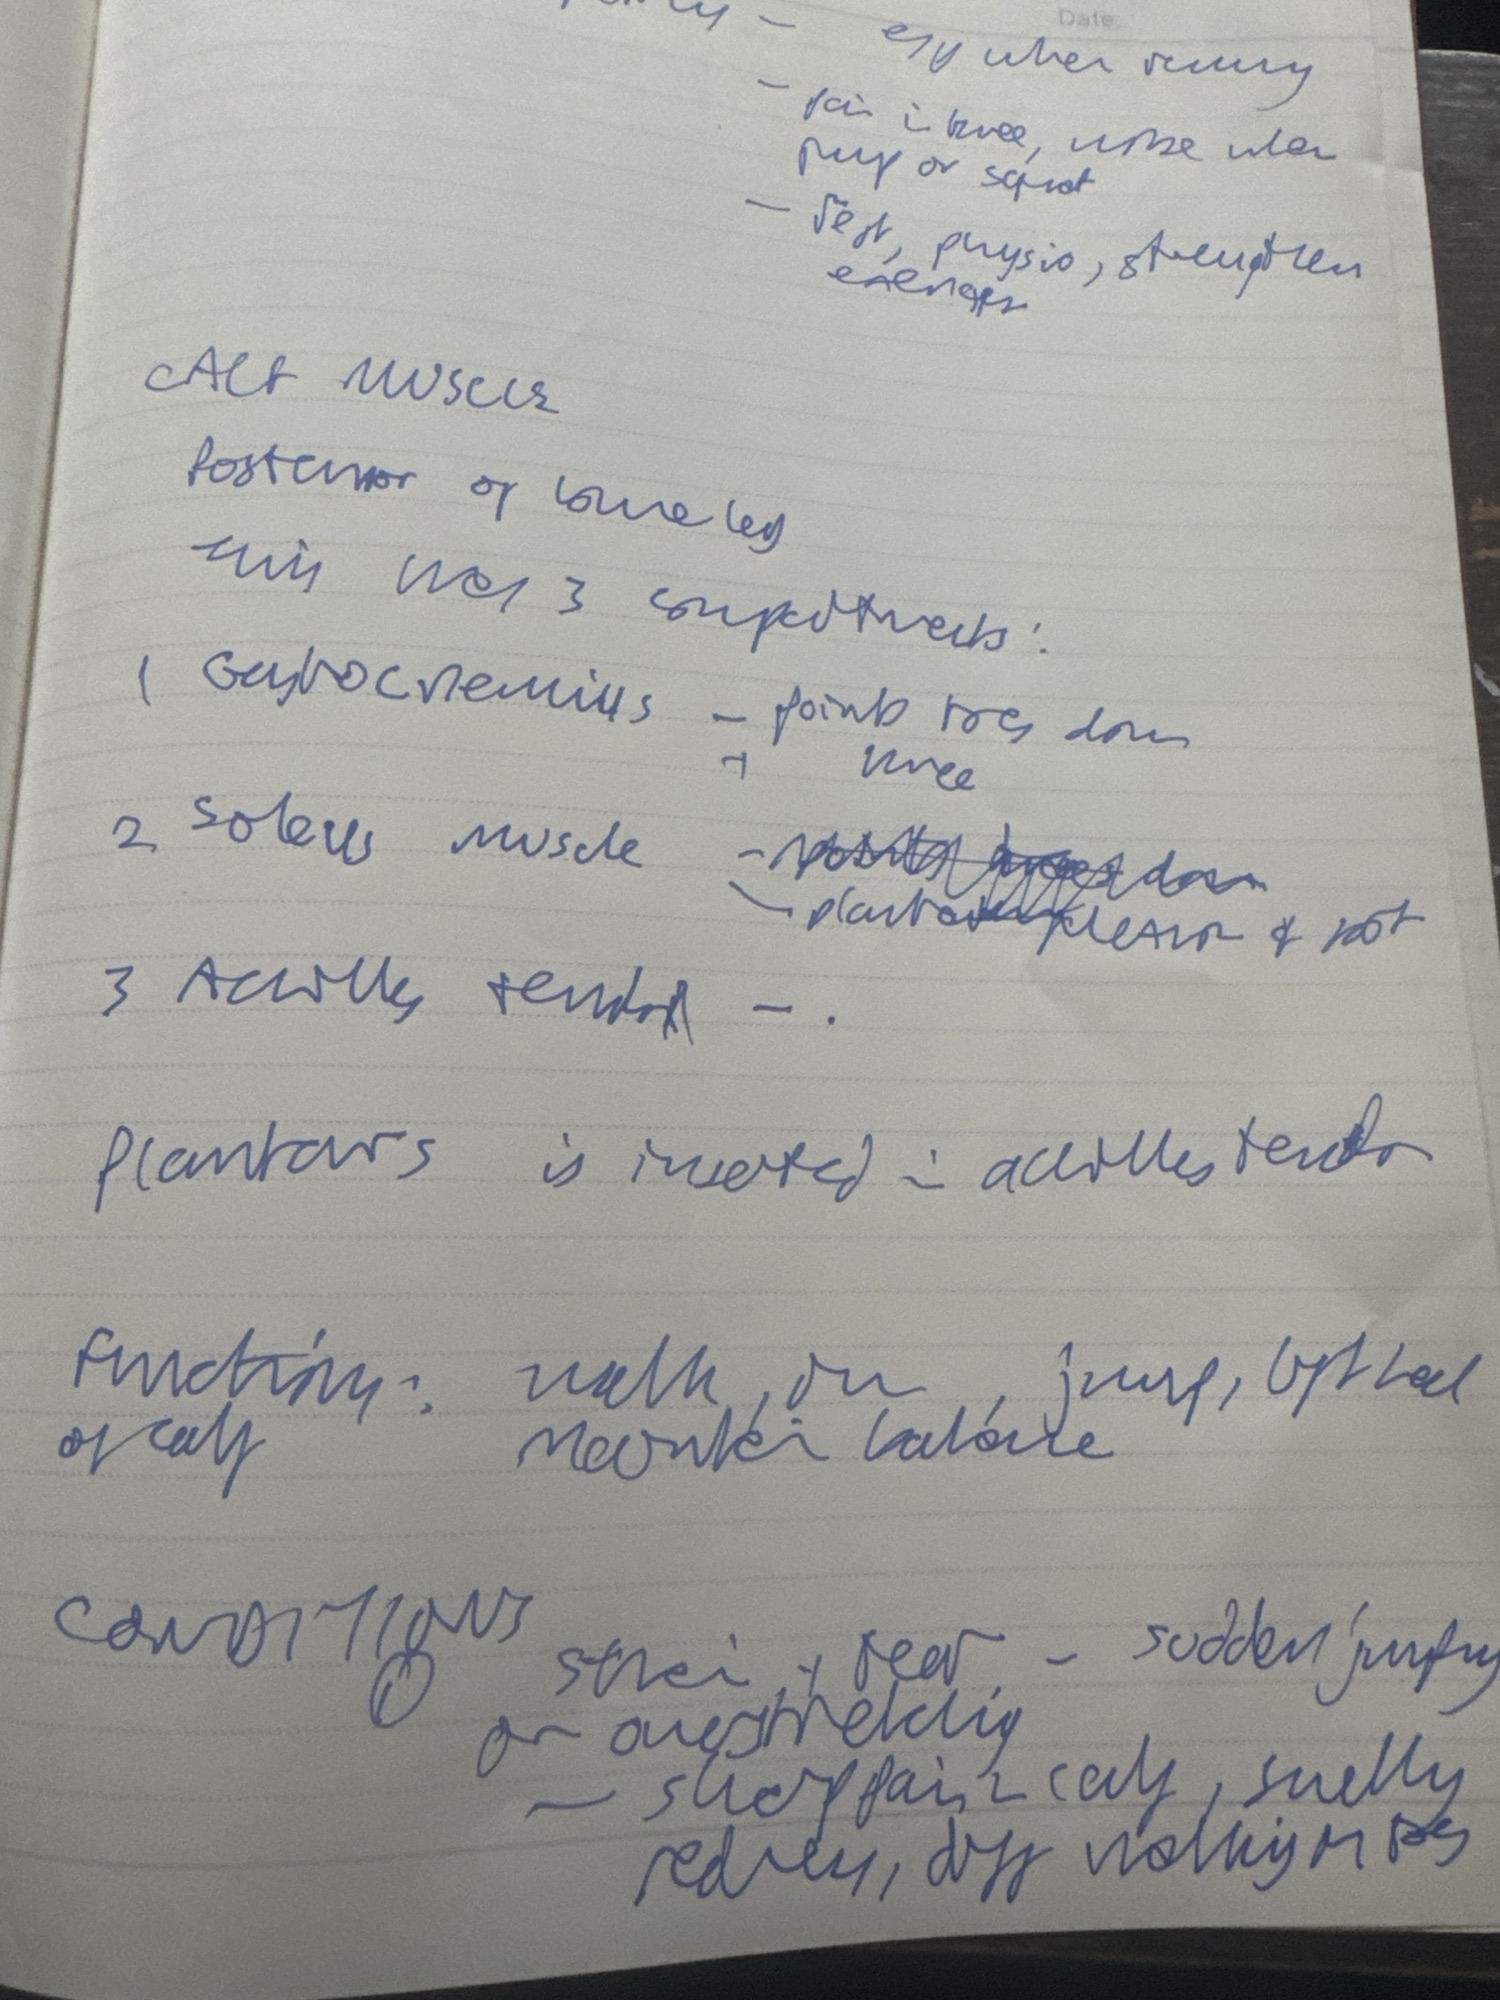 Date
esp when running
- pain in knee, worse when
jump or squat
- rest, physio, strengthen
exercises
CALF MUSCLE
Posterior of lower leg
this has 3 compartments:
1 Gastrocnemius - points toes down
+ knee
2 Soleus muscle -
- plantar flexion & not
3 Achilles tendon - .
plantaris is inserted in achilles tendon
Functions: walk, run, jump, lift heel
of calf maintain balance
CONDITIONS
① strain + tear - sudden jumping
or overstretching
- sharp pain in calf, swelling
redness, diff walking on toes